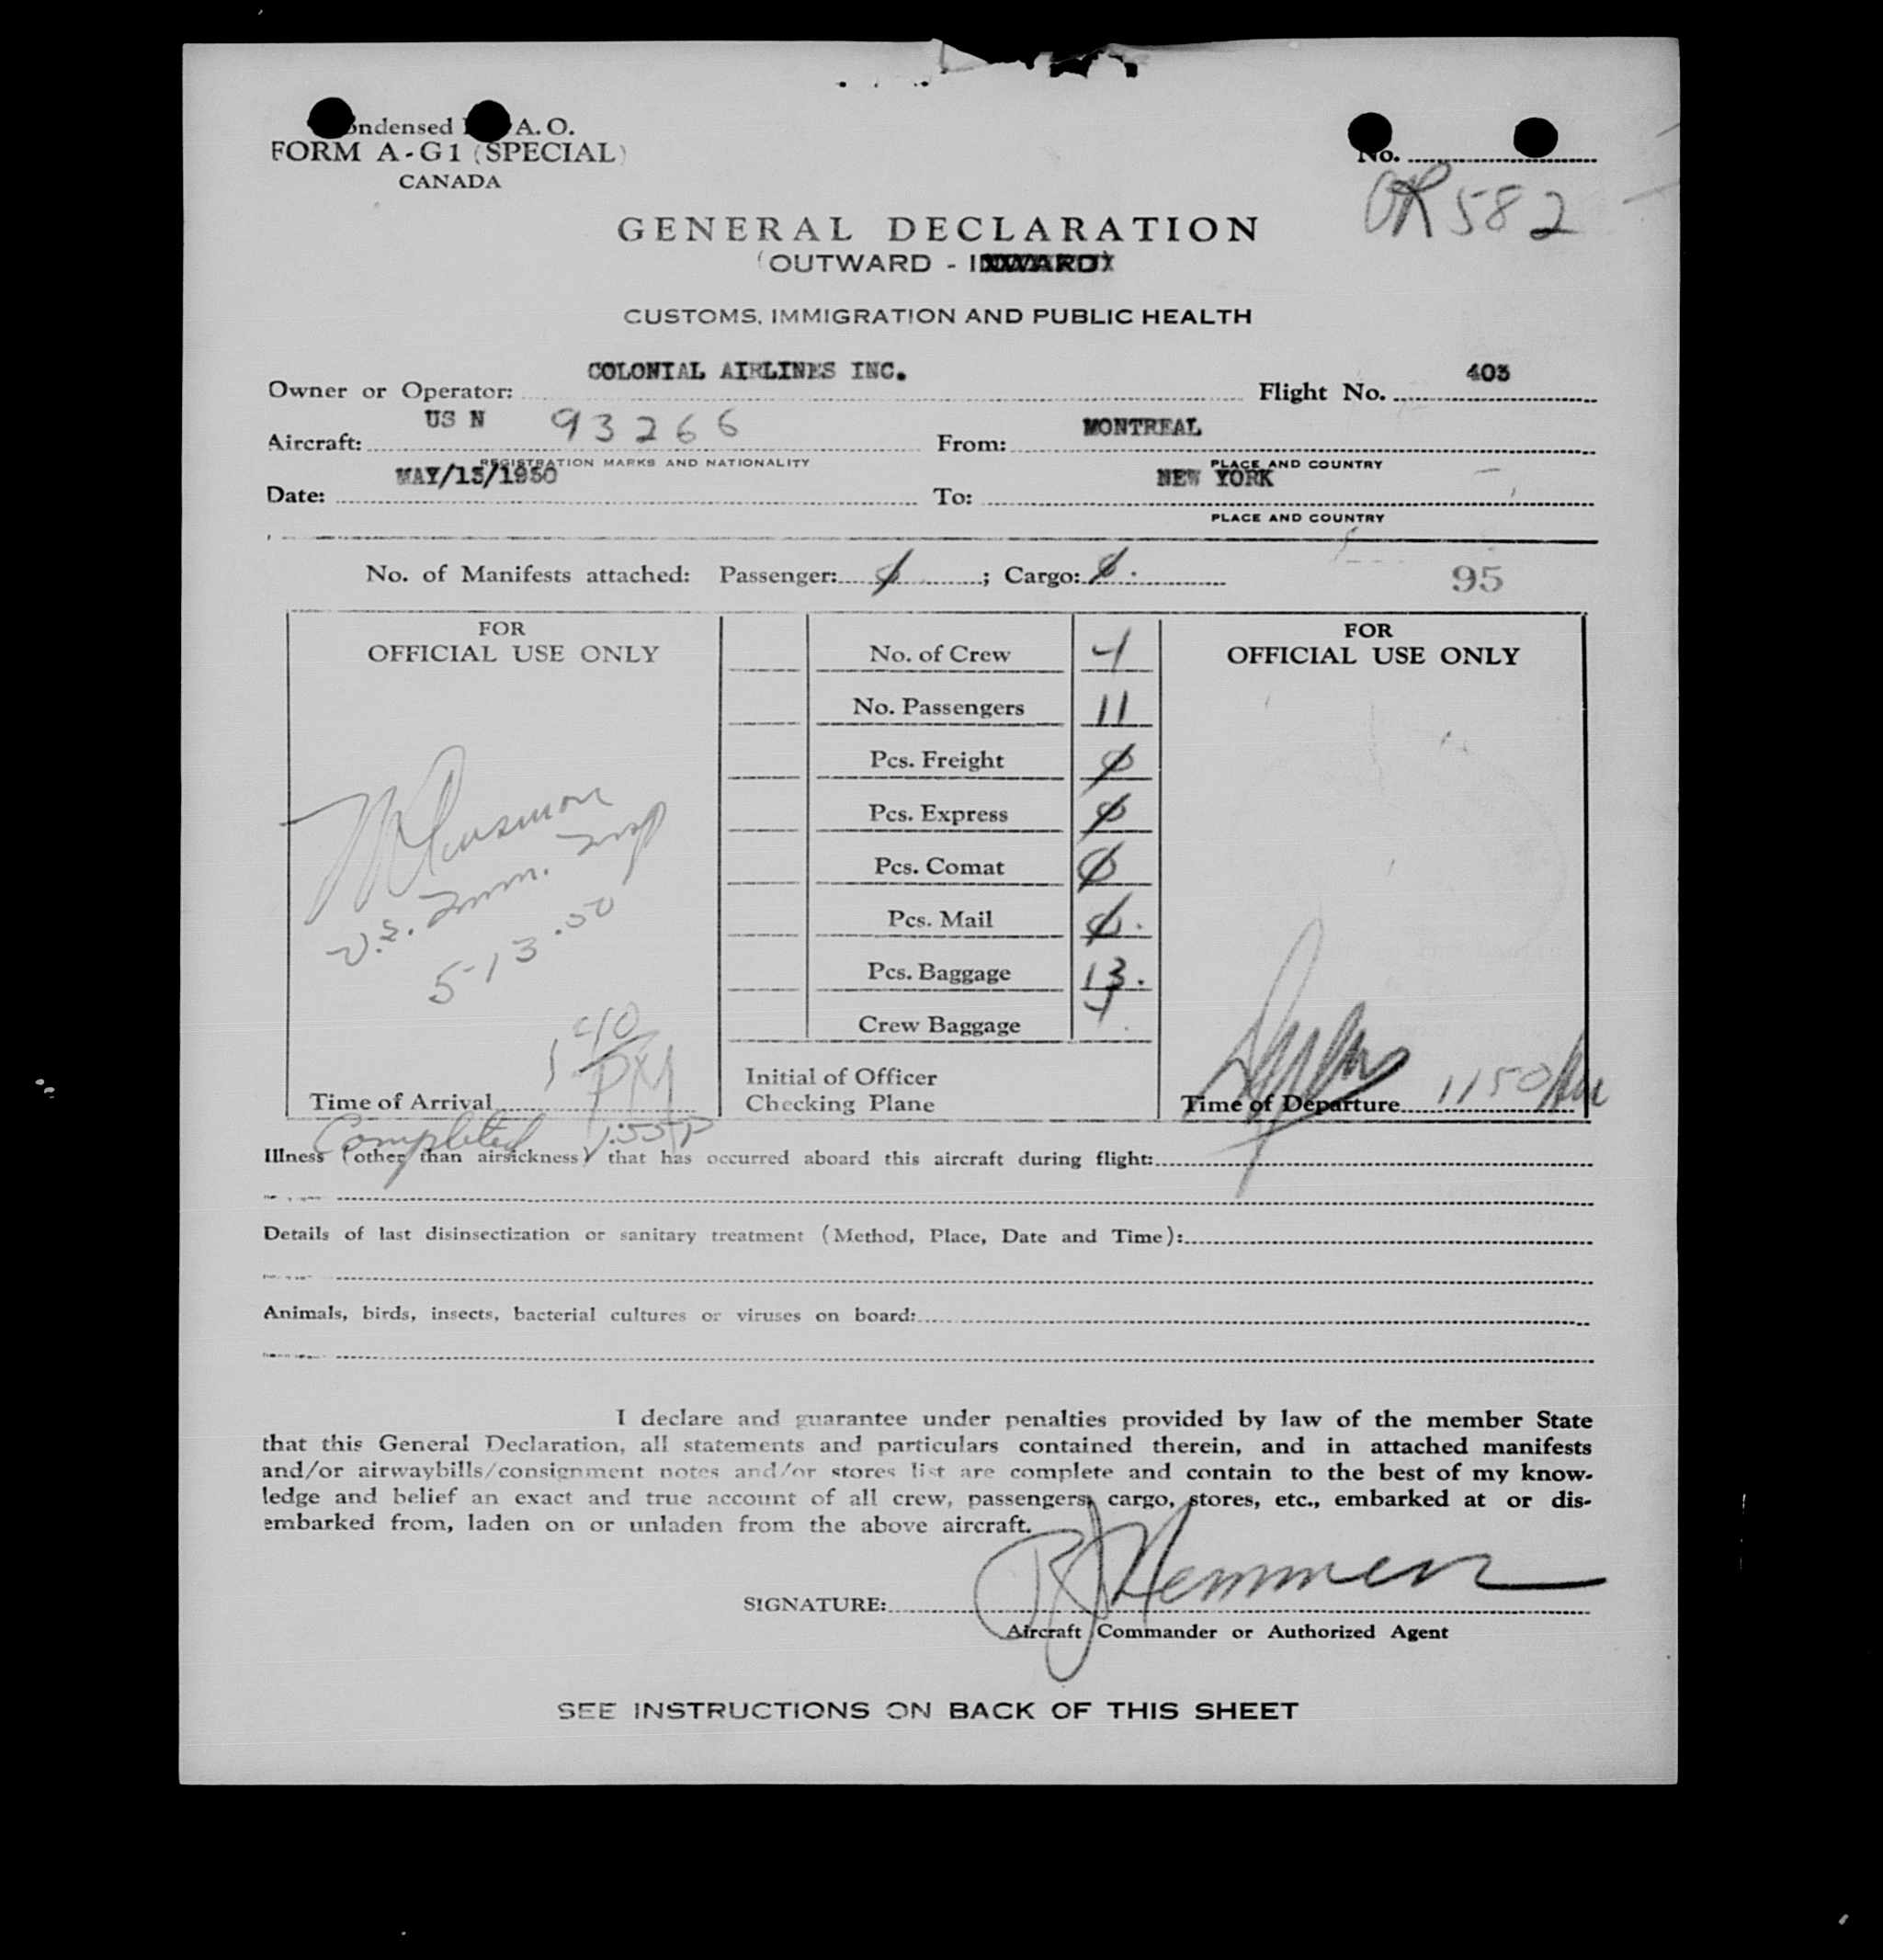 ondensed A. O.
FORM A-G1 (SPECIAL)
CANADA
No.
OR 582
GENERAL DECLARATION
(OUTWARD - INWARD)
CUSTOMS, IMMIGRATION AND PUBLIC HEALTH
Owner or Operator: COLONIAL AIRLINES INC. Flight No. 403
Aircraft: US N 93266 From: MONTREAL
REGISTRATION MARKS AND NATIONALITY PLACE AND COUNTRY
Date: MAY/13/1950 To: NEW YORK
PLACE AND COUNTRY
No. of Manifests attached: Passenger: 0 ; Cargo: 0.
95
FOR
OFFICIAL USE ONLY
U.S. Imm. Insp
5-13.50
1 40 PM
Time of Arrival
Completed 1:55 P
No. of Crew 4
No. Passengers 11
Pcs. Freight 0
Pcs. Express 0
Pcs. Comat 0
Pcs. Mail 0.
Pcs. Baggage 13.
Crew Baggage 4
Initial of Officer
Checking Plane
FOR
OFFICIAL USE ONLY
Time of Departure 1150
Illness (other than airsickness) that has occurred aboard this aircraft during flight:
Details of last disinsectization or sanitary treatment (Method, Place, Date and Time):
Animals, birds, insects, bacterial cultures or viruses on board:
I declare and guarantee under penalties provided by law of the member State
that this General Declaration, all statements and particulars contained therein, and in attached manifests
and/or airwaybills/consignment notes and/or stores list are complete and contain to the best of my know-
ledge and belief an exact and true account of all crew, passengers, cargo, stores, etc., embarked at or dis-
embarked from, laden on or unladen from the above aircraft.
SIGNATURE:
Aircraft Commander or Authorized Agent
SEE INSTRUCTIONS ON BACK OF THIS SHEET